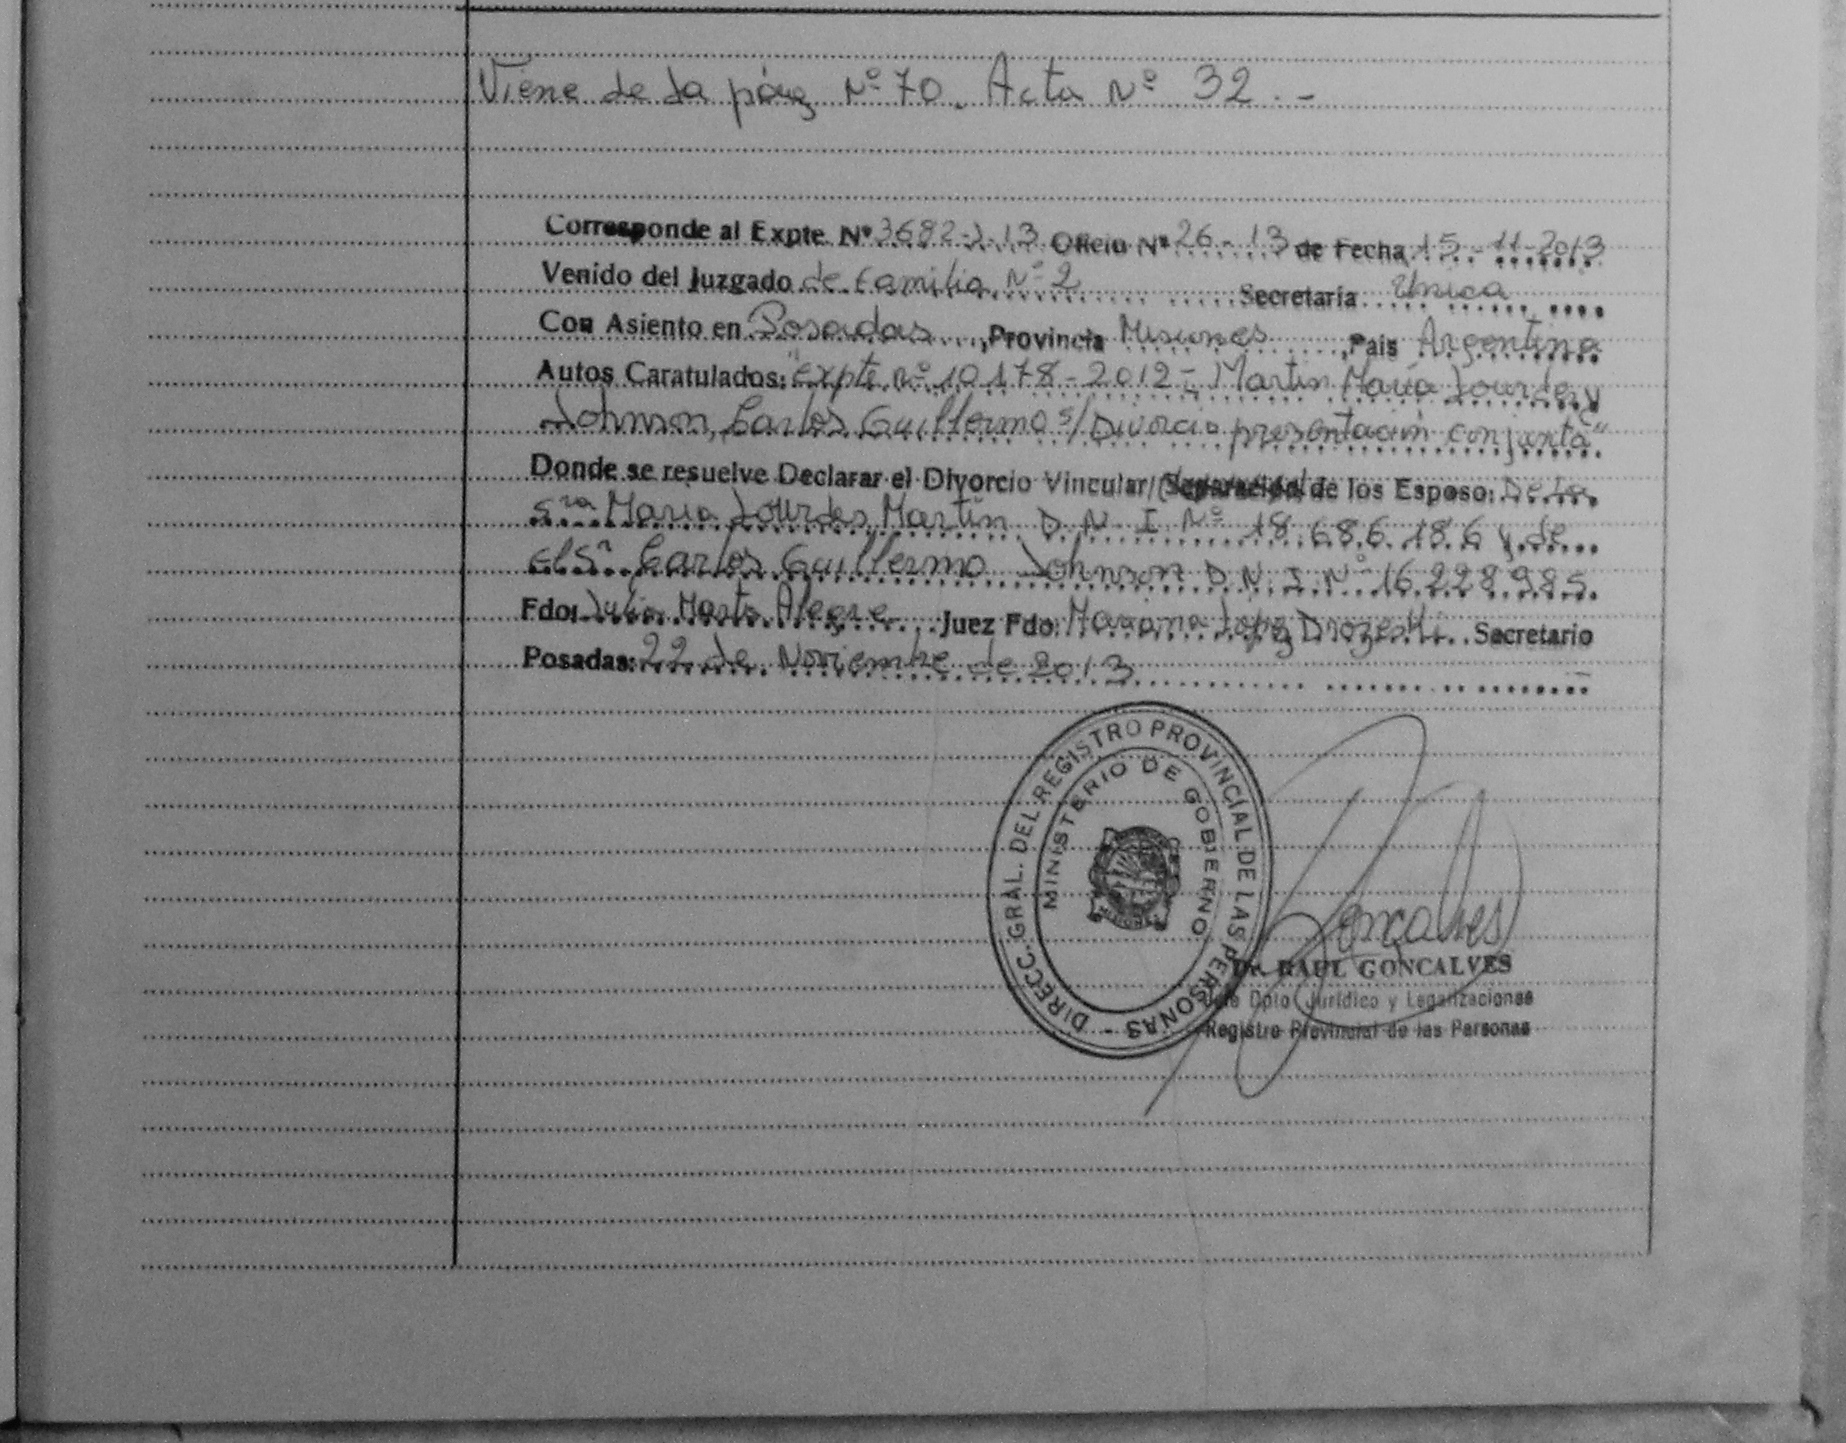 Viene de la pág Nº 70. Acta Nº 32.-
Corresponde al Expte Nº 3682-J-13 Oficio Nº 26-13 de Fecha 15-11-2013
Venido del Juzgado de Familia Nº 2 Secretaría Única
Con Asiento en Posadas, Provincia Misiones, País Argentina
Autos Caratulados: "Expte Nº 10178-2012- Martin María Lourdes y
Johnson, Carlos Guillermo s/ Divorcio presentación conjunta"
Donde se resuelve Declarar el Divorcio Vincular / de los Esposo: De la
Sra María Lourdes Martin D.N.I Nº 18.686.186 y de
el Sr Carlos Guillermo Johnson D.N.I Nº 16.228.985.
Fdo: Julia Marta Alegre Juez Fdo: Mariana Secretario
Posadas: 22 de Noviembre de 2013
DIRECC. GRAL. DEL REGISTRO PROVINCIAL DE LAS PERSONAS -
MINISTERIO DE GOBIERNO
Goncalves
Dr. RAUL GONCALVES
Jefe Dpto Jurídico y Legalizaciones
Registro Provincial de las Personas